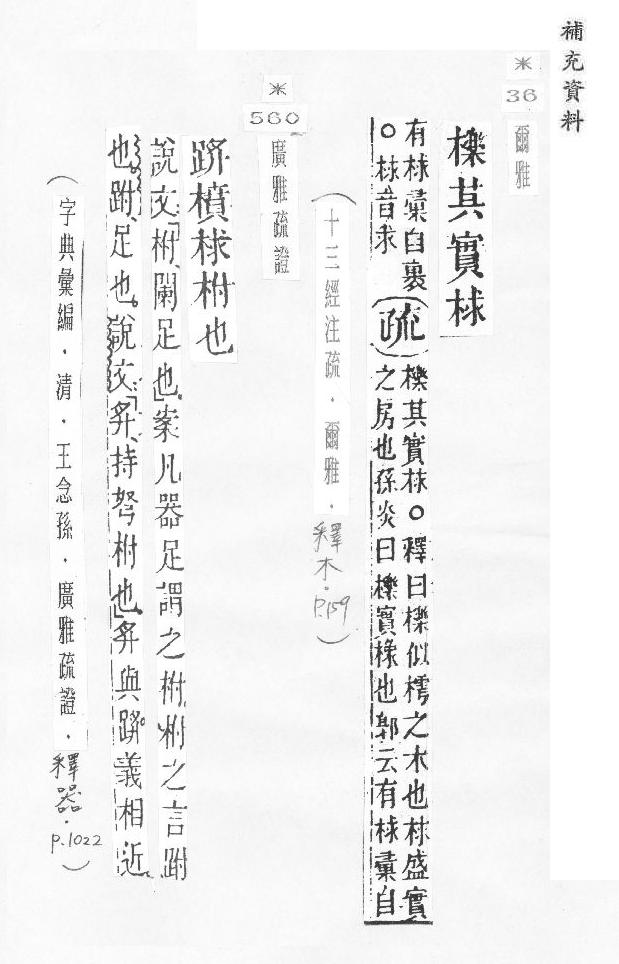 補充資料
※
36
爾雅
櫟其實梂
有梂彙自裹
○梂音求
(疏)
櫟其實梂○釋曰櫟似樗之木也梂盛實
之房也孫炎曰櫟實橡也郭云有梂彙自
(十三經注疏．爾雅．釋木．P.159)
※
560
廣雅疏證
橨梂柎也
說文「柎、闌足也。」案凡器足謂之柎柎之言跗
也跗、足也。說文持弩柎也」與義相近。
(字典彙編．清．王念孫．廣雅疏證．釋器．P.1022)